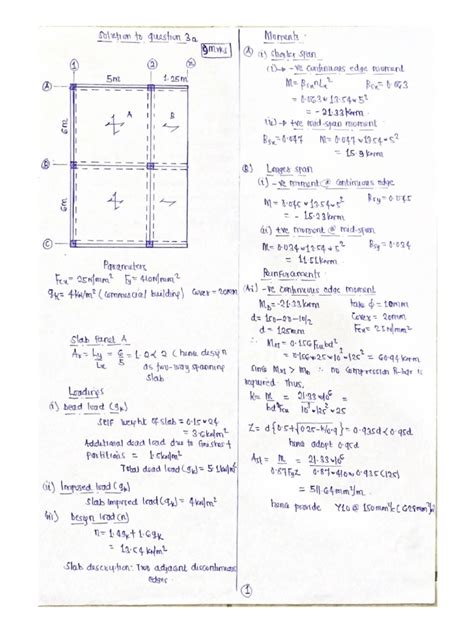 Solution to question 3a
9 mrks
1
2
5m
1.25m
A
6m
A
B
B
6m
C
Parameters
Fcu = 25N/mm² Fy = 410N/mm²
qk = 4kN/m² (commercial building) Cover = 20mm
Slab Panel A
= Ly/Lx = 6/5 = 1.2 < 2 (hence design
as two-way spanning
slab
Loadings
(i) Dead load (gk)
Self weight of slab = 0.15 * 24
= 3.6kN/m²
Additional dead load due to finishes +
partitions = 1.5kN/m²
Total dead load (gk) = 5.1kN/m²
(ii) Imposed load (qk)
Slab imposed load (qk) = 4kN/m²
(iii) Design load (n)
n = 1.4gk + 1.6qk
= 13.54 kN/m²
Slab description: Two adjacent discontinuous
edges
Moments:
A (i) Shorter span
(i) → -ve continuous edge moment
M = βsx nLx² βsx = 0.063
= 0.063 * 13.54 * 5²
= -21.33kNm
(ii) → +ve mid-span moment
βsx = 0.047 M = 0.047 * 13.54 * 5²
= 15.9kNm
(B) Longer span
(i) -ve moment @ continuous edge
M = 0.045 * 13.54 * 5² βsy = 0.045
= -15.23kNm
(ii) +ve moment @ mid-span
M = 0.034 * 13.54 * 5² βsy = 0.034
= 11.51kNm
Reinforcements
(Ai) -ve continuous edge moment
= -21.33kNm take ϕ = 10mm
d = 150-20-10/2 Cover = 20mm
d = 125mm Fcu = 25N/mm²
∴ = 0.156 Fcu bd²
= 0.156 * 25 * 10³ * 125² = 60.94 kNm
since > ∴ no compression R-bar is
required. Thus,
K = M/bd²Fcu = 21.33*10⁶/10³*125²*25
Z = d{0.5+√0.25-k/0.9} = 0.935d < 0.95d
hence adopt
Ast = M/0.87FyZ = 21.33*10⁶/0.87*410*0.935(125)
= 511.64mm²/m
hence provide Y10 @ 150mm c/c
1